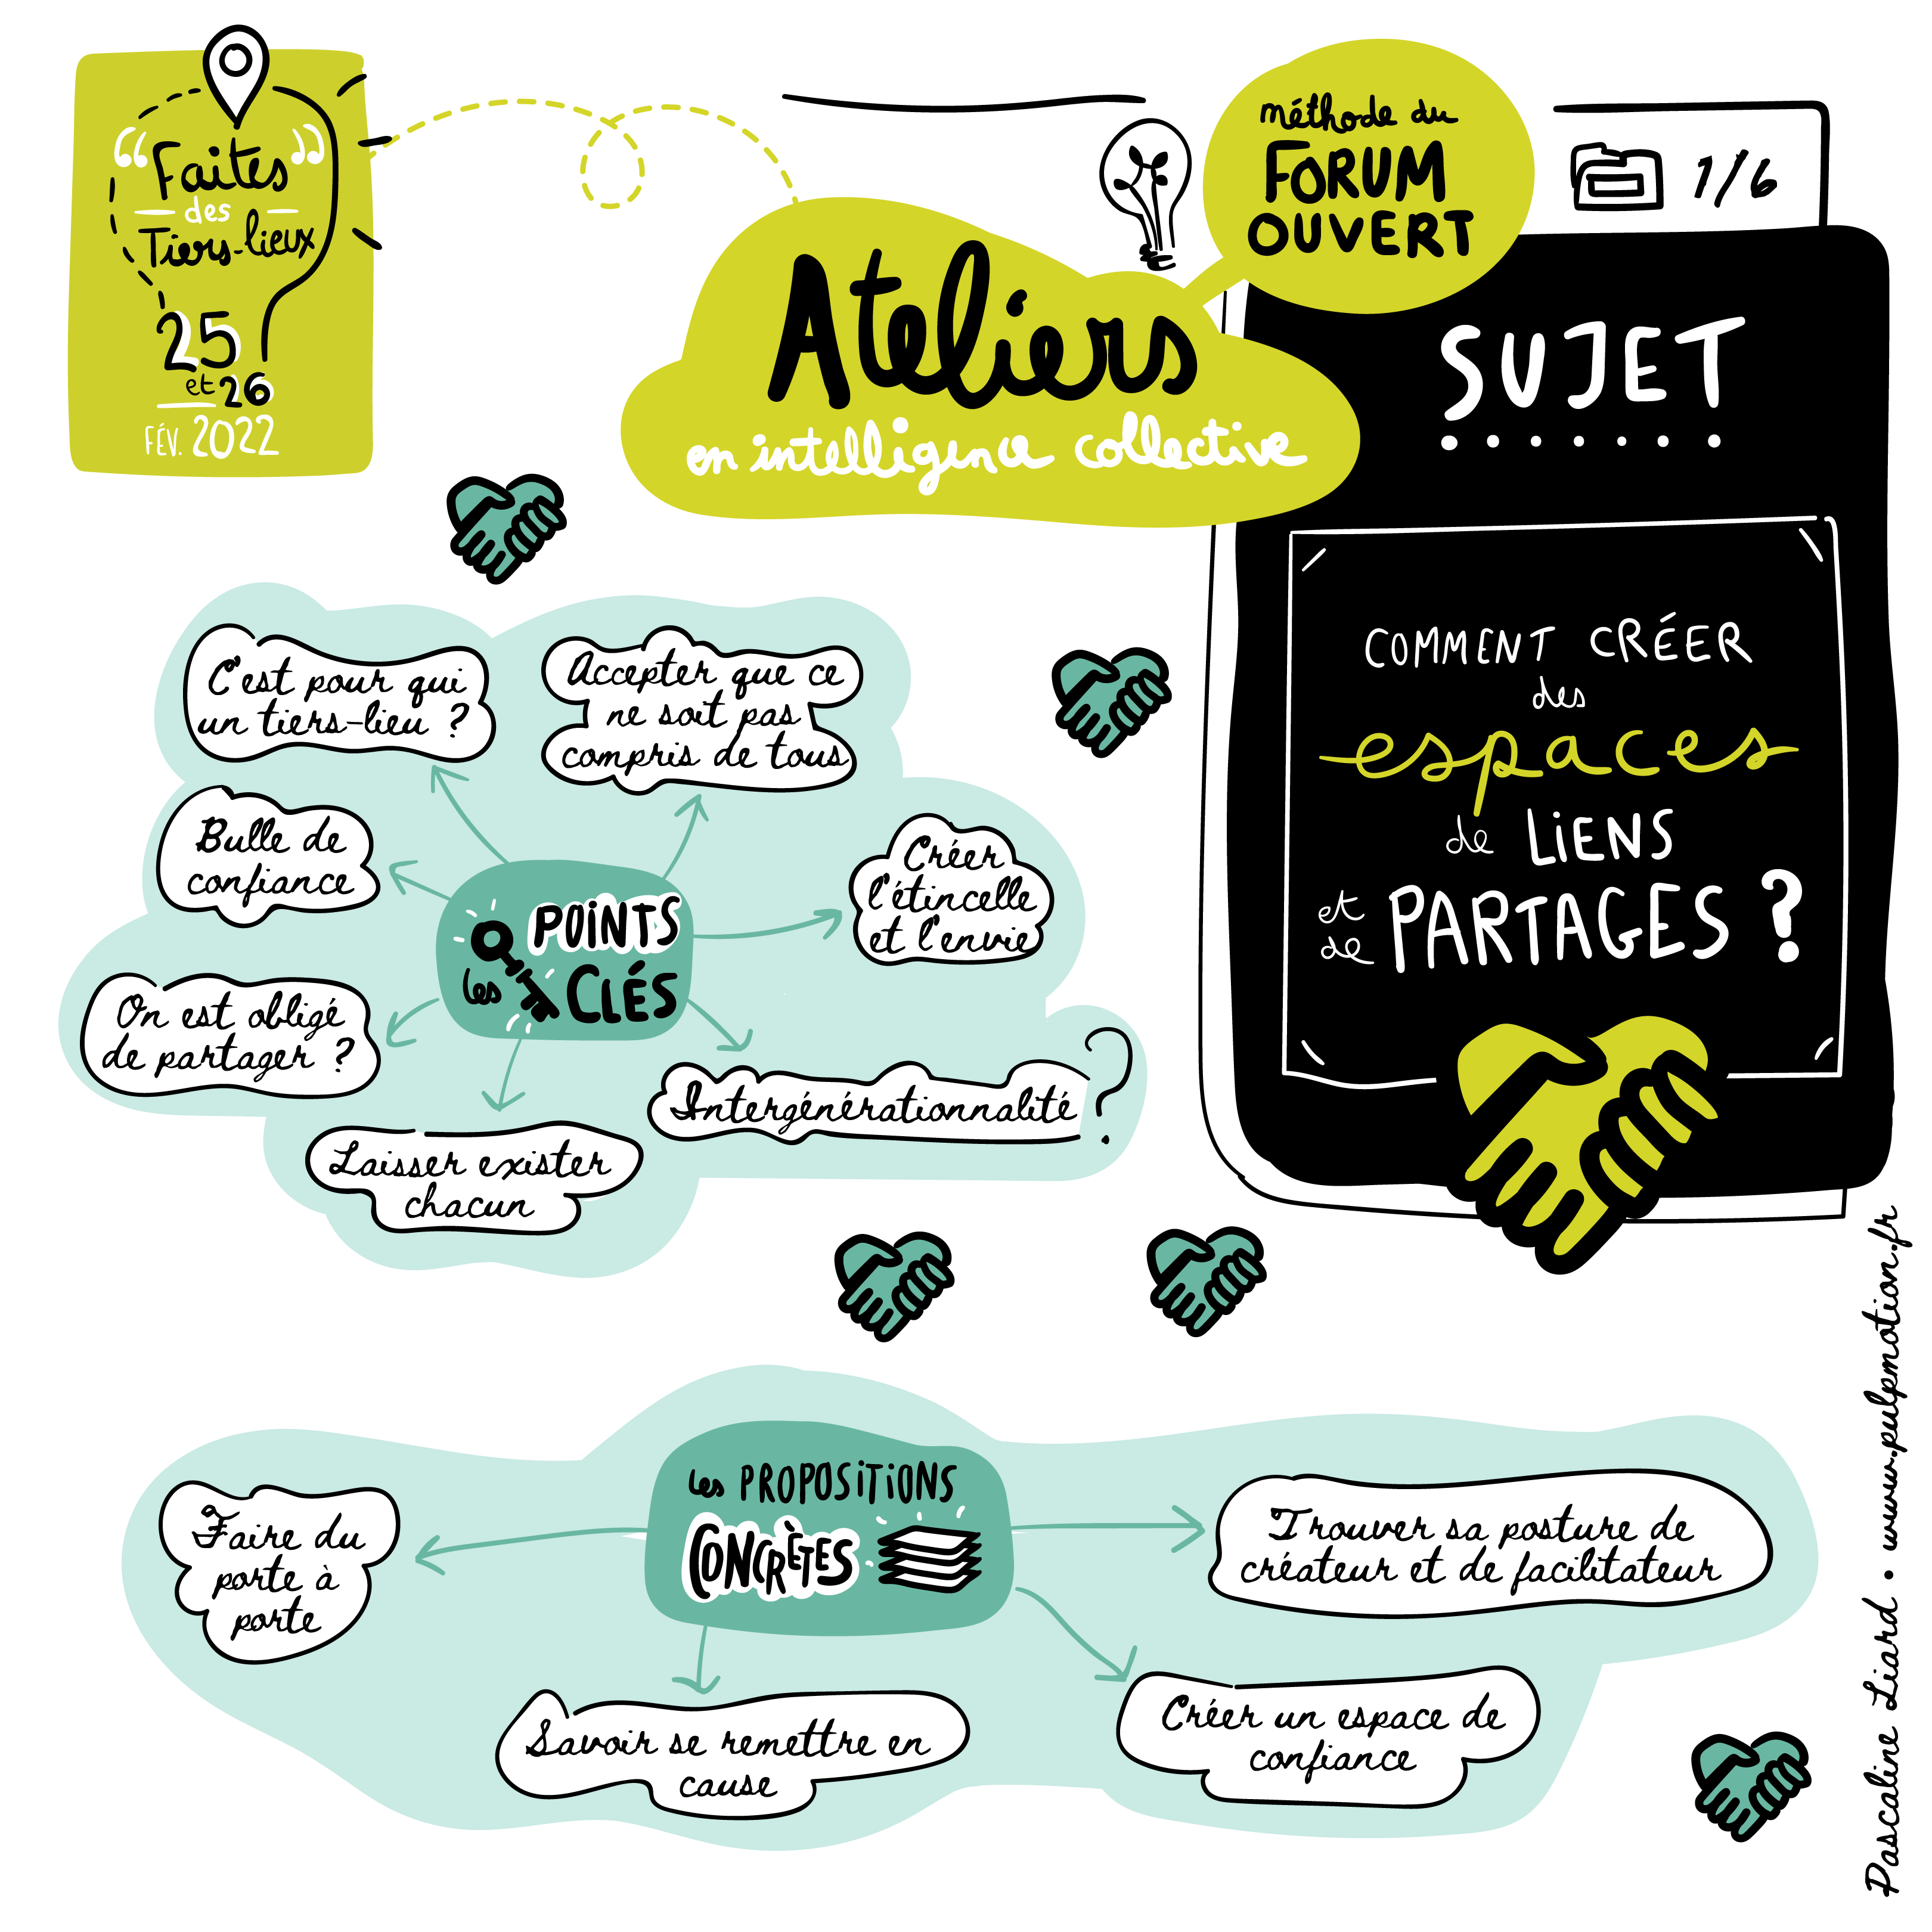 “Faites”
des
Tiers-lieux
25
et 26
FÉV. 2022
Ateliers
en intelligence collective
méthode du
FORUM
OUVERT
1/6
SUJET
COMMENT CRÉER
des
espaces
de LiENS
et de PARTAGES ?
C'est pour qui
un tiers-lieu ?
Accepter que ce
ne soit pas
compris de tous
Bulle de
confiance
Créer
l'étincelle
et l'envie
Les POiNTS
CLÉS
On est obligé
de partager ?
Intergénérationnalité ?
Laisser exister
chacun
Les PROPOSiTiONS
CONCRÈTES
Faire du
porte à
porte
Trouver sa posture de
créateur et de facilitateur
Savoir se remettre en
cause
Créer un espace de
confiance
Pascaline Liard • www.pulpmotion.fr